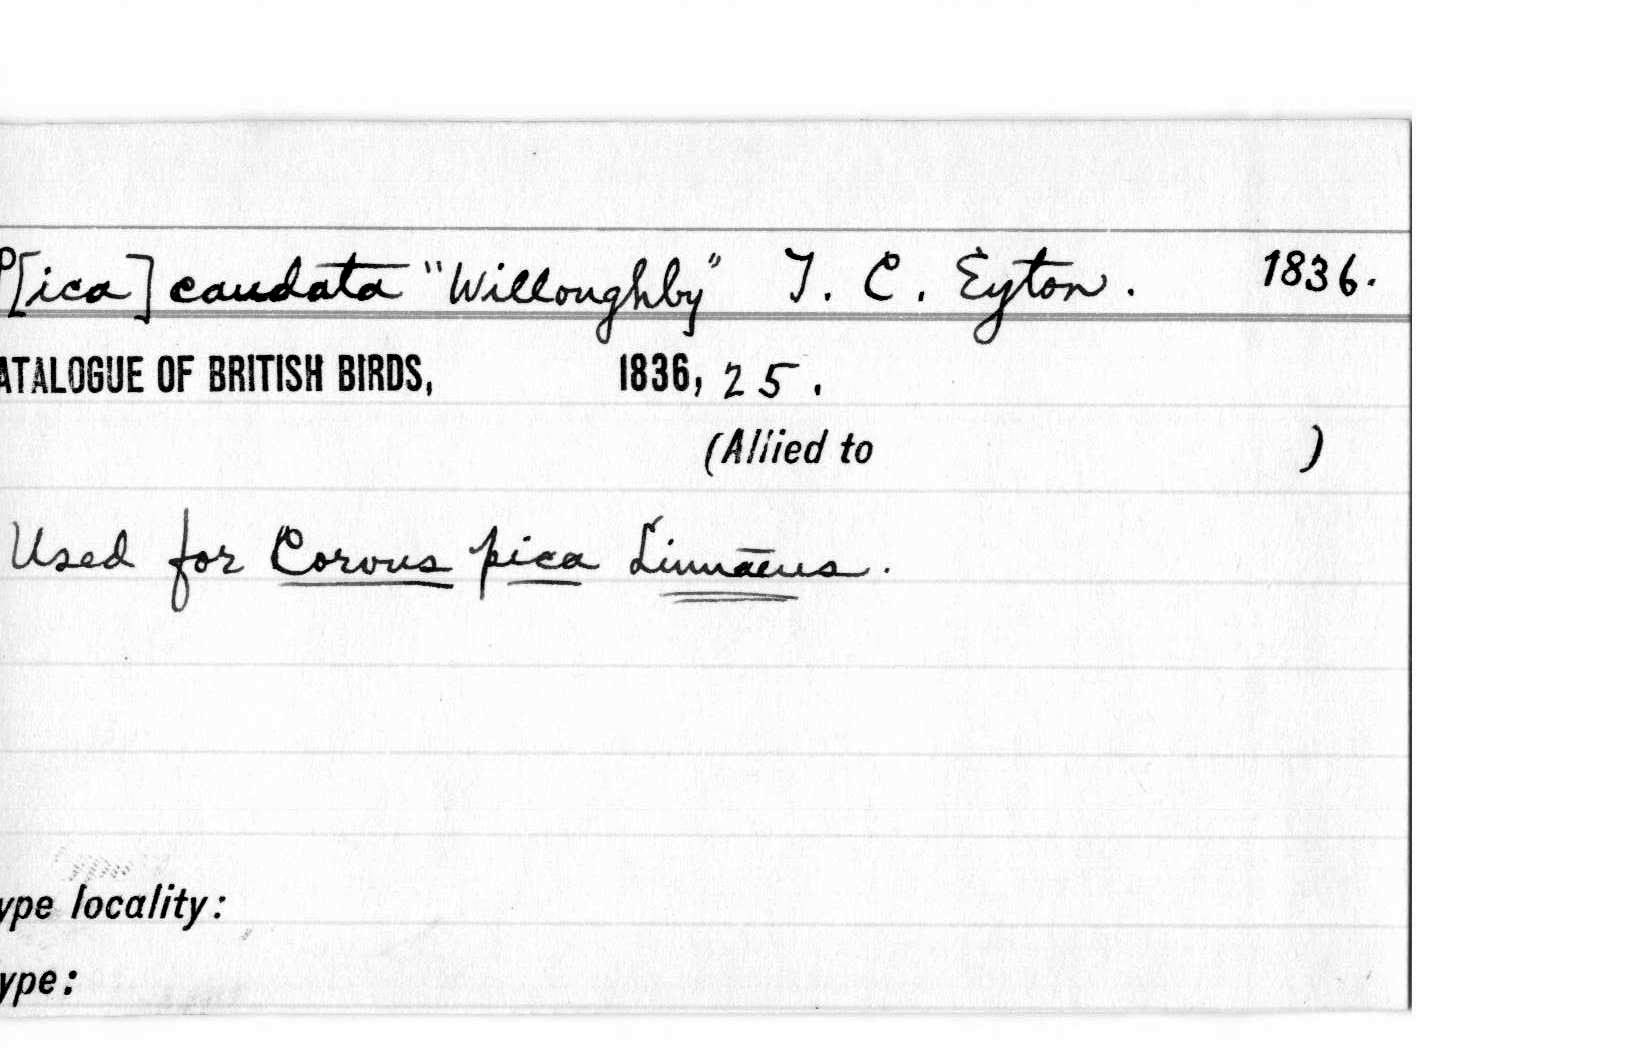 P[ica] caudata "Willoughby" T. C. Eyton. 1836.
ATALOGUE OF BRITISH BIRDS, 1836, 25.
(Allied to )
Used for Corvus pica Linnaeus.
ype locality:
ype: